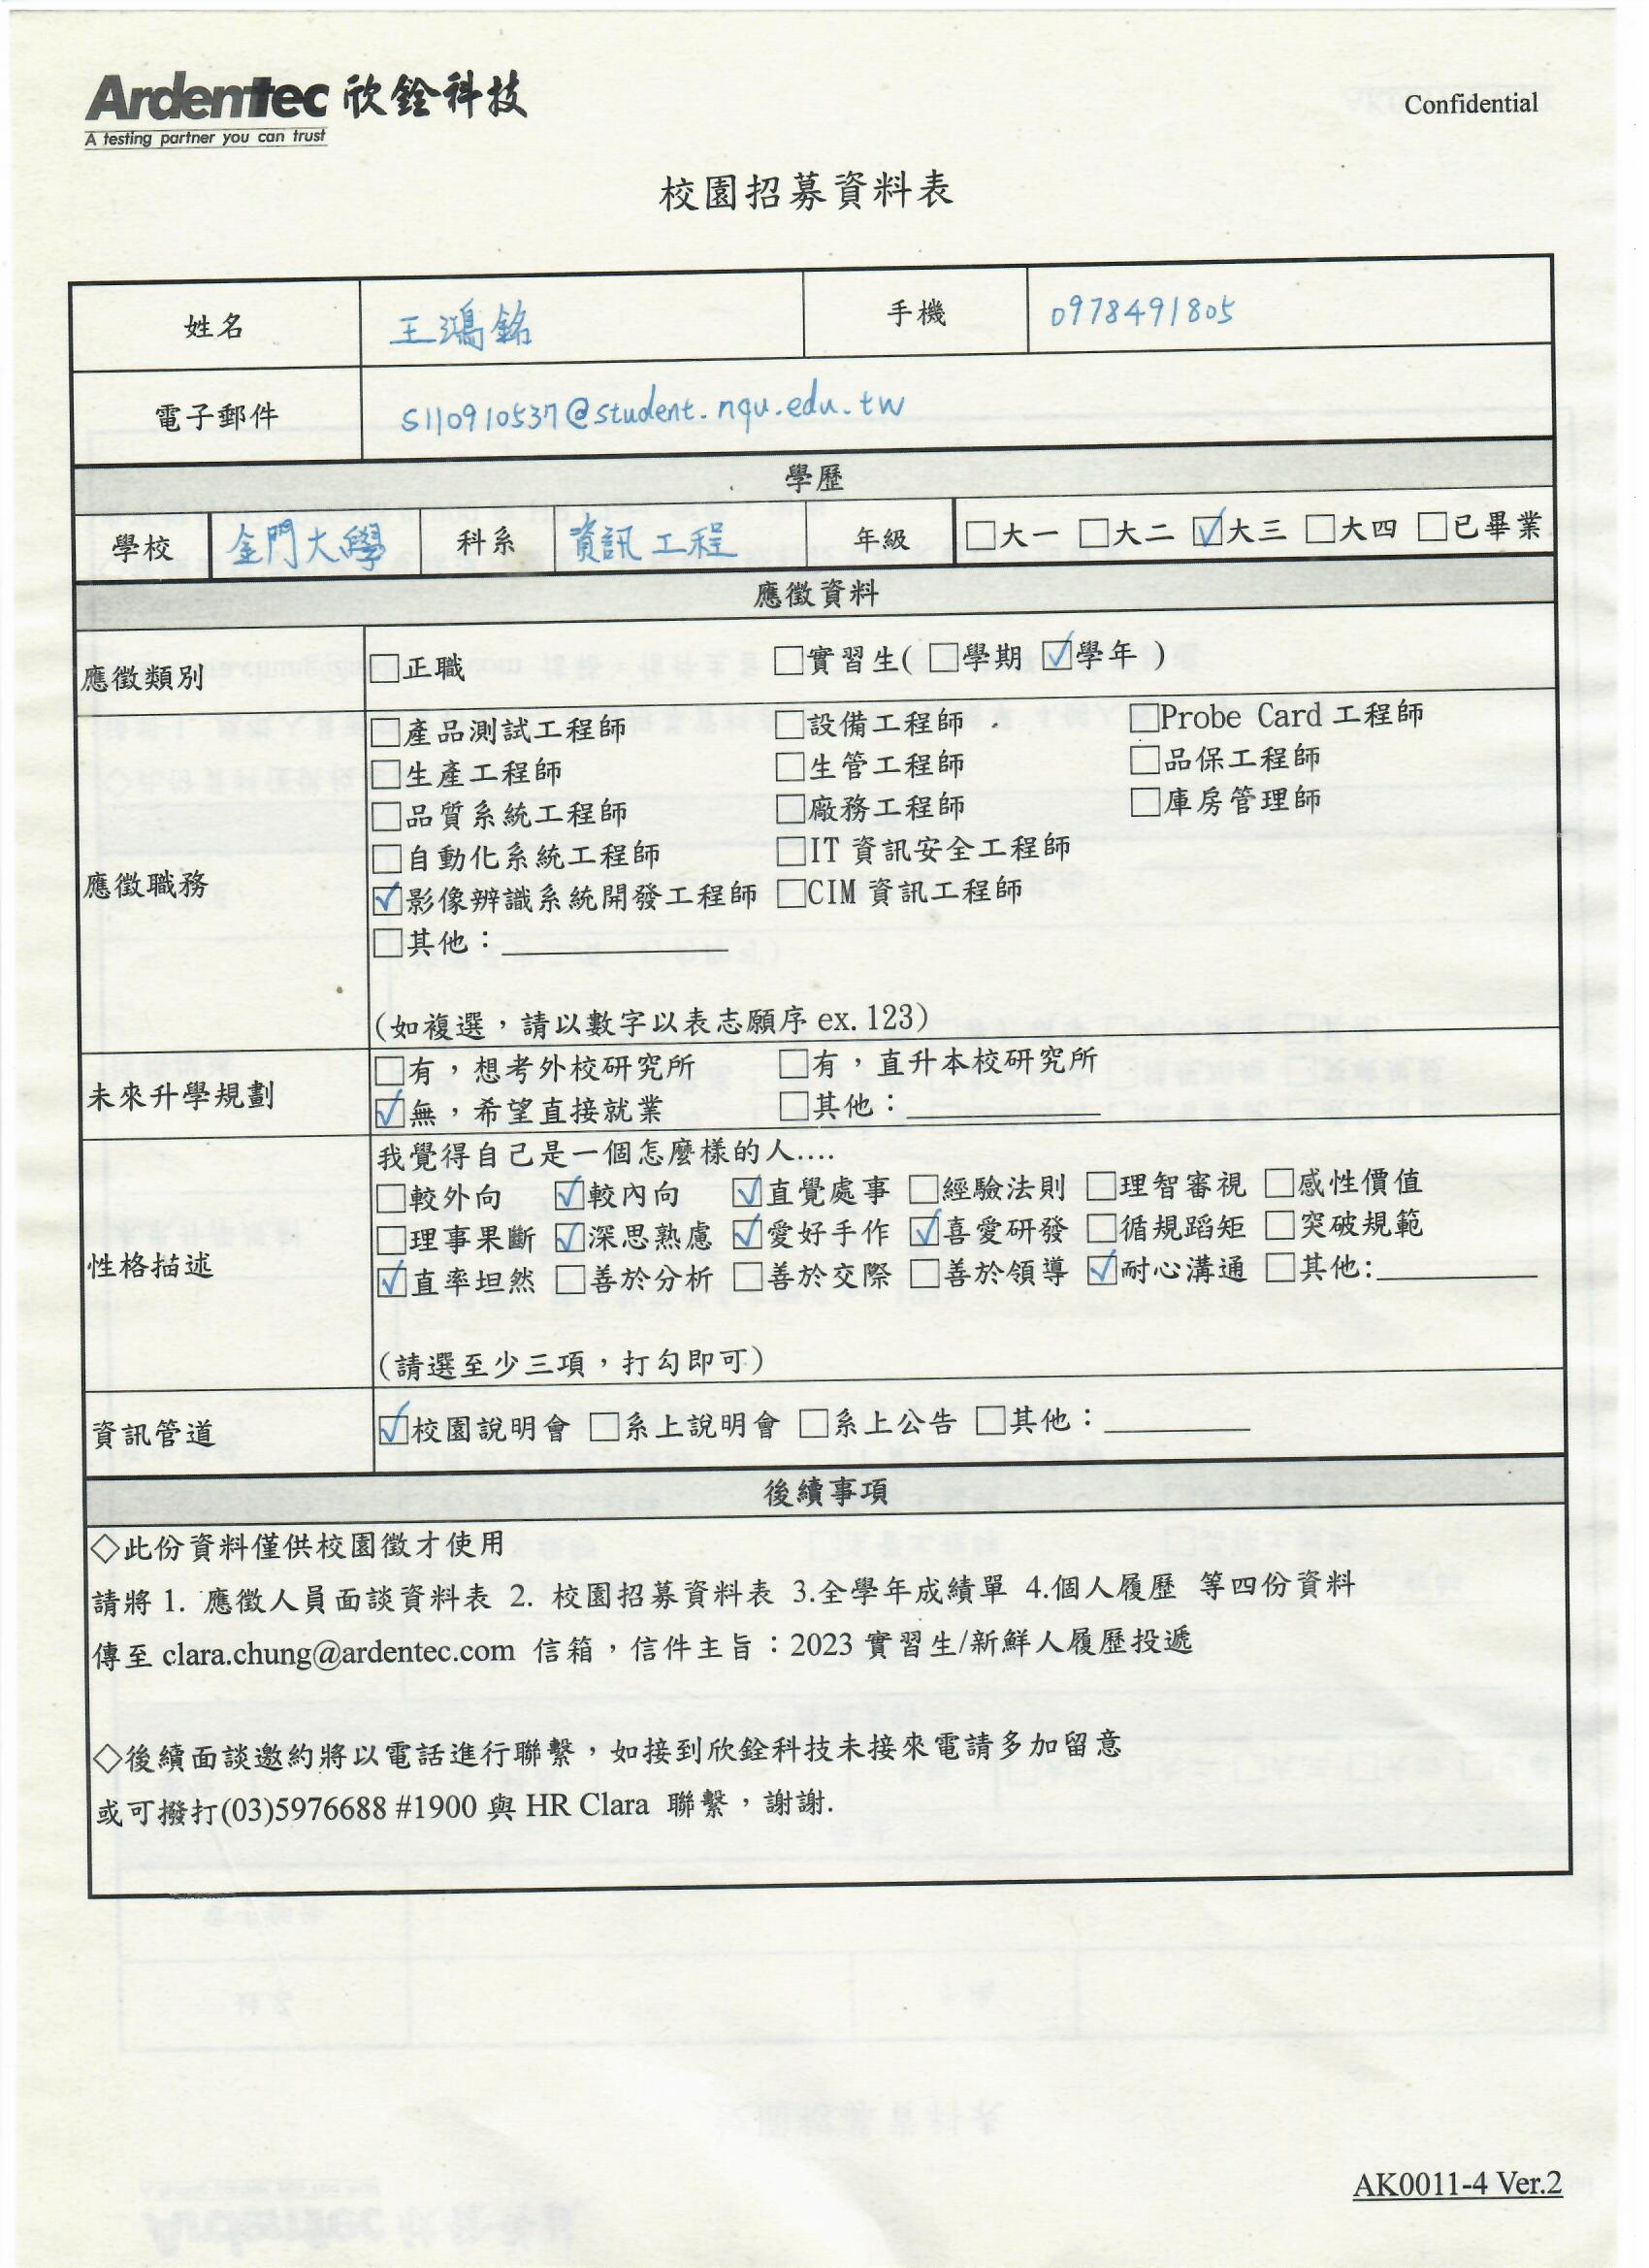 Ardentec 欣銓科技
A testing partner you can trust
Confidential
校園招募資料表
姓名 王鴻銘 手機 0978491805
電子郵件 s110910537@student.nqu.edu.tw
學歷
學校 金門大學 科系 資訊工程 年級 □大一 □大二 ☑大三 □大四 □已畢業
應徵資料
應徵類別 □正職 □實習生( □學期 ☑學年 )
應徵職務
□產品測試工程師 □設備工程師 □Probe Card 工程師
□生產工程師 □生管工程師 □品保工程師
□品質系統工程師 □廠務工程師 □庫房管理師
□自動化系統工程師 □IT 資訊安全工程師
☑影像辨識系統開發工程師 □CIM 資訊工程師
□其他：
(如複選，請以數字以表志願序 ex. 123)
未來升學規劃
□有，想考外校研究所 □有，直升本校研究所
☑無，希望直接就業 □其他：
性格描述
我覺得自己是一個怎麼樣的人....
□較外向 ☑較內向 ☑直覺處事 □經驗法則 □理智審視 □感性價值
□理事果斷 ☑深思熟慮 ☑愛好手作 ☑喜愛研發 □循規蹈矩 □突破規範
☑直率坦然 □善於分析 □善於交際 □善於領導 ☑耐心溝通 □其他:
(請選至少三項，打勾即可)
資訊管道 ☑校園說明會 □系上說明會 □系上公告 □其他：
後續事項
◇此份資料僅供校園徵才使用
請將 1. 應徵人員面談資料表 2. 校園招募資料表 3.全學年成績單 4.個人履歷 等四份資料
傳至 clara.chung@ardentec.com 信箱，信件主旨：2023 實習生/新鮮人履歷投遞
◇後續面談邀約將以電話進行聯繫，如接到欣銓科技未接來電請多加留意
或可撥打(03)5976688 #1900 與 HR Clara 聯繫，謝謝.
AK0011-4 Ver.2